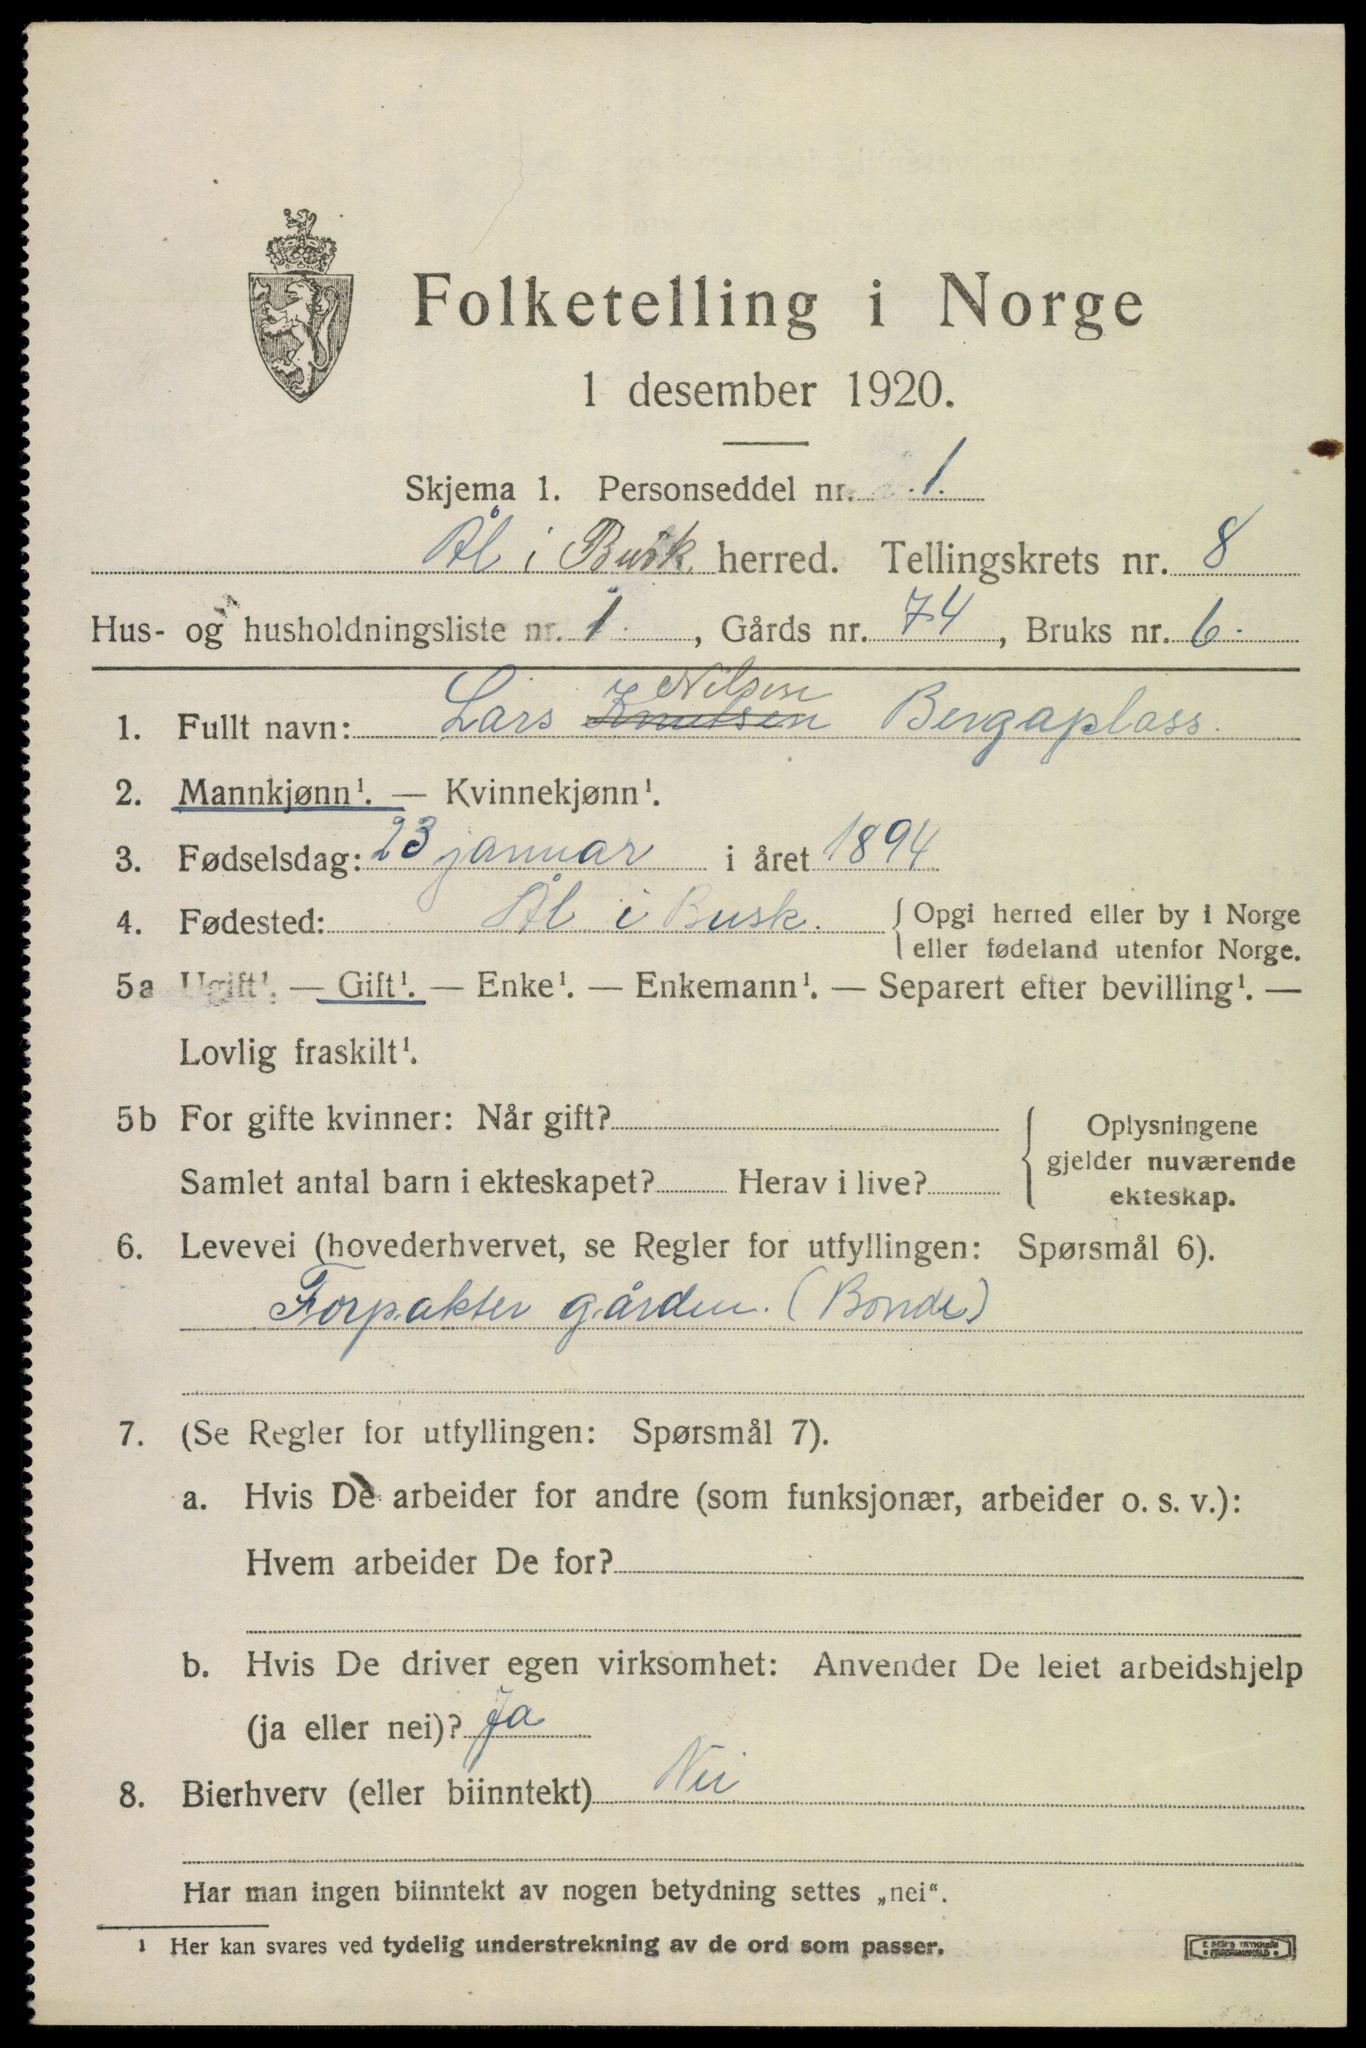 Folketelling i Norge
1 desember 1920.
Skjema 1. Personseddel nr. 1.
Ål i Busk. herred. Tellingskrets nr. 8
Hus- og husholdningsliste nr. 1. , Gårds nr. 74 , Bruks nr. 6.
Nilsen
1. Fullt navn: Lars Knutsen Bergaplass.
2. Mannkjønn¹. — Kvinnekjønn¹.
3. Fødselsdag: 23 januar i året 1894
4. Fødested: Ål i Busk. { Opgi herred eller by i Norge
eller fødeland utenfor Norge.
5a Ugift¹. — Gift¹. — Enke¹. — Enkemann¹. — Separert efter bevilling¹. —
Lovlig fraskilt¹.
5b For gifte kvinner: Når gift?
Samlet antal barn i ekteskapet? Herav i live?
Oplysningene
gjelder nuværende
ekteskap.
6. Levevei (hovederhvervet, se Regler for utfyllingen: Spørsmål 6).
Forpakter gården. (Bonde)
7. (Se Regler for utfyllingen: Spørsmål 7).
a. Hvis De arbeider for andre (som funksjonær, arbeider o. s. v.):
Hvem arbeider De for?
b. Hvis De driver egen virksomhet: Anvender De leiet arbeidshjelp
(ja eller nei)? Ja
8. Bierhverv (eller biinntekt) Nei
Har man ingen biinntekt av nogen betydning settes „nei“.
¹ Her kan svares ved tydelig understrekning av de ord som passer.